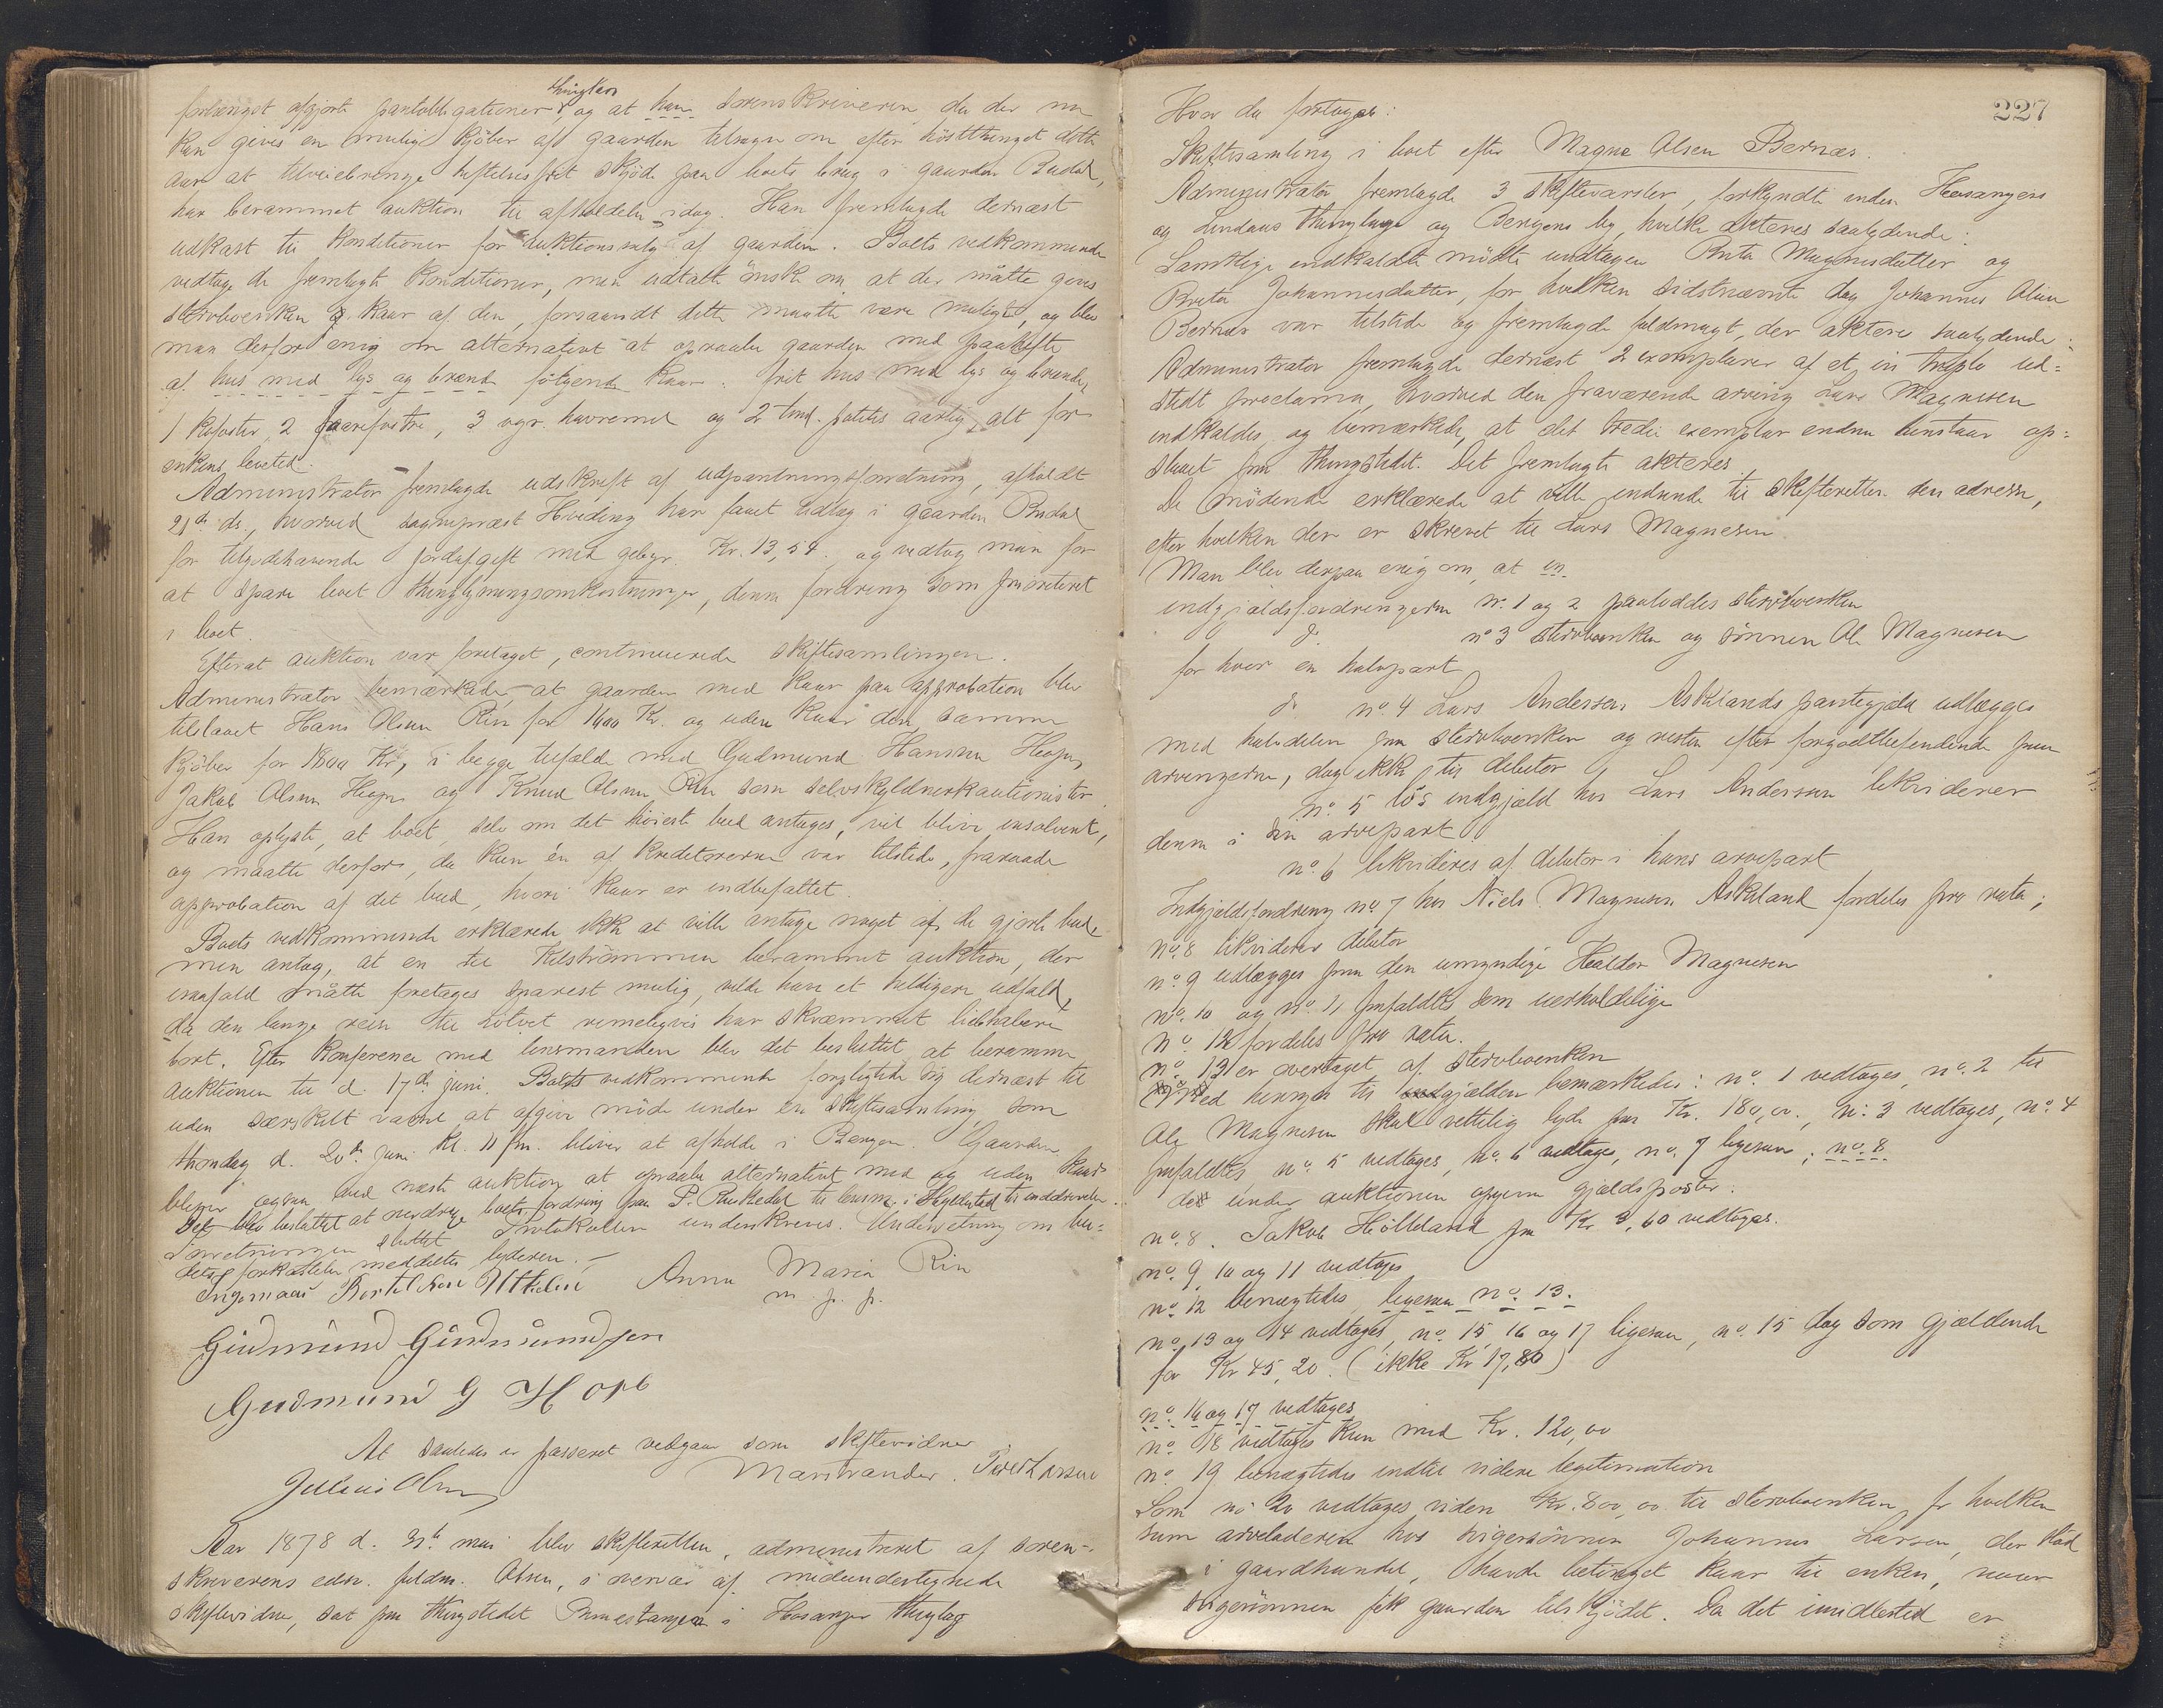 forlængst afgjorte pantobligationer og at han sorenskriveren da der nu
kan gives en mulig kjøber af gaarden tilsagn om efter høstthinget dette
aar at tilveiebringe heftelsesfrit skjøde paa boets brug i gaarden
har berammet auktion til afholdelse idag. Han fremlagde dernæst
udkast til konditioner for auktionssalg af gaarden. Boets vedkommende
vedtog de fremlagte konditioner, men udtalte ønske om at der måtte gives
stervboenken kaar af den, forsaavidt dette maatte være muligt, og blev
man derfor enig om alternativt at opraabe gaarden med paahefte
af hus med lys og brænde følgende kaar: frit hus med lys og brænde,
1 kofoster, 2 faarefostre, 3 vgr. havremel og 2 tønd. potetes aarlig, alt for
enkens levetid.
Administrator fremlagde udskrift af udpantningsforretning, afholdt
21de ds., hvorved sogneprest Hvoding har faaet udlæg i gaarden
for tilgodehavende jordafgift med gebyr Kr. 13,54. og vedtog man for
at spare boet thinglysningsomkostninger, denne fordring som prioriteret
i boet.
Efterat auktion var foretaget, continuerede skiftesamlingen.
Administrator bemærkede, at gaarden med kaar paa approbation blev
tilslaaet Hans Olsen Rin for 1400 Kr. og uden kaar den samme
kjøber for 1800 Kr., i begge tilfælde med Gudmund Hansen Hope,
Jakob Olsen Hope og Knud Olsen Rin som selvskyldnerkautionister.
Han oplyste, at boet, selv om det høieste bud antages, vil blive insolvent,
og maatte derfor, da kun én af kreditorerne var tilstede, fraraade
approbation af det bud, hvori kaar er indbefattet.
Boets vedkommende erklærede ikke at ville antage noget af de gjorte bud,
men antog, at en til Kilstrømmen berammet auktion, der
isaafald måtte foretages snarest mulig, vilde have et heldigere udfald,
da den lange reise til rimeligvis har skræmmet liebhabere
bort. Efter konference med lensmanden blev det besluttet at beramme
auktionen til d. 17de juni. Boets vedkommende forpligtede sig dernæst til
uden særskilt varsel at afgive møde under en skiftesamling, som
thorsdag d. 20de juni kl. 11 fm. bliver at afholde i Bergen. Gaarden
bliver ogsaa ved næste auktion at opraabe alternativt med og uden kaar.
Det blev besluttet at boets fordring paa P. til lensm. i til inddrivelse.
Forretningen sluttet. Protokollen underskreves. Underretning om bu-
dets forkastelse meddeltes byderen. –
Ingemaar Bertelsen Anna Maria Rin
m. p. p.
Gudmund Gudmundsen
Gudmund G Hope
At saaledes er passeret vedgaar som skiftevidner
Julius Olsen Marstrander.
Aar 1878 d. 31te mai blev skifteretten, administreret af soren-
skriverens edsv. fuldm. Olsen, i overvær af medundertegnede
skiftevidner, sat paa thingstedet i Hosanger thinglag
227
Hvor da foretages:
Skiftesamling i boet efter Magne Olsen Bernæs.
Administrator fremlagde 3 skiftevarsler, forkyndt inden Hosangers
og Lindaas thinglage og Bergens by, hvilke akteres saalydende:
Samtlige indkaldte mødte undtagen Brita Magnesdatter og
Brita Johannesdatter, for hvilken sidstnævnte dog Johannes Olsen
Bernæs var tilstede og fremlagde fuldmagt, der akteres saalydende:
Administrator fremlagde dernæst 2 exemplarer af et, in triplo ud-
stedt proclama, hvorved den fraværende arving Lars Magnesen
indkaldes, og bemærkede, at det tredie exemplar endnu henstaar op-
slaaet paa thingstedet. Det fremlagte akteres.
De mødende erklærede at ville indsende til skifteretten den adresse,
efter hvilken der er skrevet til Lars Magnesen.
Man blev derpaa enig om, at en
indgjældsfordringerne no. 1 og 2 paaloddes stervboenken
do no 3 stervboenken og sønnen Ole Magnesen
for hver en halvpart
do no. 4 Lars Andersen Askelands pantegjæld udlægges
med halvdelen paa stervboenken og resten efter forgodtbefindende paa
arvingerne, dog ikke til debitor
no. 5 løs indgjæld hos Lars Andersen likviderer
denne i sin arvepart
no. 6 likvideres af debitor i hans arvepart
Indgjældsfordring no. 7 hos Niels Magnesen Askeland fordeles pro rata;
no. 8 likviderer debitor
no. 9 udlægges paa den umyndige Haldor Magnesen
no. 10 og no. 11 frafaldtes som uerholdelige
no. 12 fordeles pro rata.
no. 13 er overtaget af stervboenken
Med hensyn til gjælden bemærkedes: no. 1 vedtages, no. 2 til
Ole Magnesen skal rettelig lyde paa Kr. 180,00., no. 3 vedtages, no. 4
frafaldtes, no. 5 vedtages, no. 6 vedtages, no. 7 ligesaa; no. 8
de under auktionen opgivne gjældsposter:
no. 8. Jakob Hølleland paa Kr 3,60 vedtages.
no. 9, 10 og 11 vedtages
no. 12 benægtedes, ligesaa no. 13.
no. 13 og 14 vedtages, no. 15, 16 og 17 ligesaa, no. 15 dog som gjældende
for Kr 45,20. (ikke Kr 17,80)
no. 16 og 17 vedtages
no. 18 vedtages kun med Kr. 120,00
no. 19 benægtedes indtil videre legitimation
Som no 20 vedtages viden Kr. 800,00 til stervboenken, for hvilken
sum arveladeren hos svigersønnen Johannes Larsen, der stod
i gaardhandel, havde betinget kaar til enken, naar
svigersønnen fik gaarden tilskjødet. Da det imidlertid er